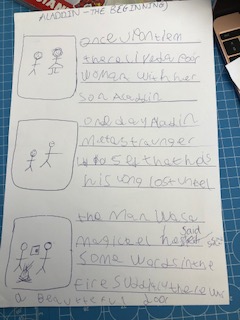 ALADDIN - THE BEGINNING)
once upontiem
there lived a poor
woman with her
son Aladdin
one day Aladin
met a stranger
his long lost
the man was a
magical he said
some words in the
fire suddinly there was
a Beautiful door